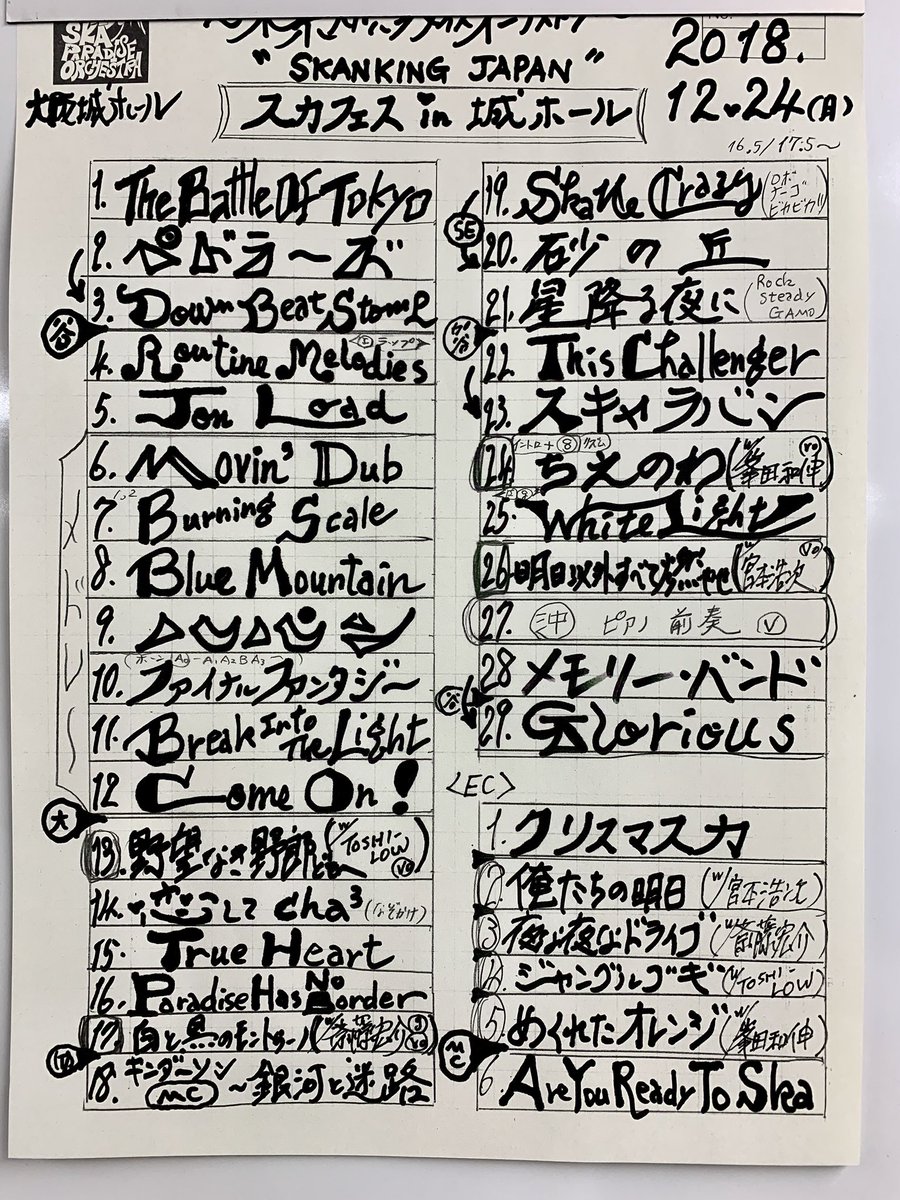 SKA
PARADISE
ORCHESTRA
"SKANKING JAPAN"
2018.
12.24(月)
大阪城ホール
スカフェス in 城ホール
16.5/17.5〜
1. The Battle Of Tokyo
2. ペドラーズ
3. Down Beat Stomp
谷
4. Routine Melodies
5. Jon Lord
メドレー
6. Movin' Dub
7. Burning Scale
8. Blue Mountain
9.
10. ファイナルファンタジー
11. Break Into The Light
12 Come On!
大
13. 野望なき野郎どもへ (w/TOSHI-LOW Vo)
14. 恋して cha³ (なぞかけ)
15. True Heart
16. Paradise Has No Border
17 白と黒のモントゥーノ (w/斎藤宏介 Vo)
18. キンダーソン MC 〜銀河と迷路
19. Skate Crazy
SE
20. 砂の丘
21. 星降る夜に (Rock Steady GAMO)
22. This Challenger
23. スキャラバン
24. ちえのわ (w/峯田和伸 Vo)
25. White Light
26 明日以外すべて燃やせ (w/宮本浩次 Vo)
27. 沖 ピアノ 前奏 V
28 メモリー・バンド
谷
29. Glorious
<EC>
1. クリスマス力
2. 俺たちの明日 (w/宮本浩次)
3. 夜な夜なドライブ (w/斎藤宏介)
4. ジャングルブギー (w/TOSHI-LOW)
5. めくれたオレンジ (w/峯田和伸)
MC
6. Are You Ready To Ska